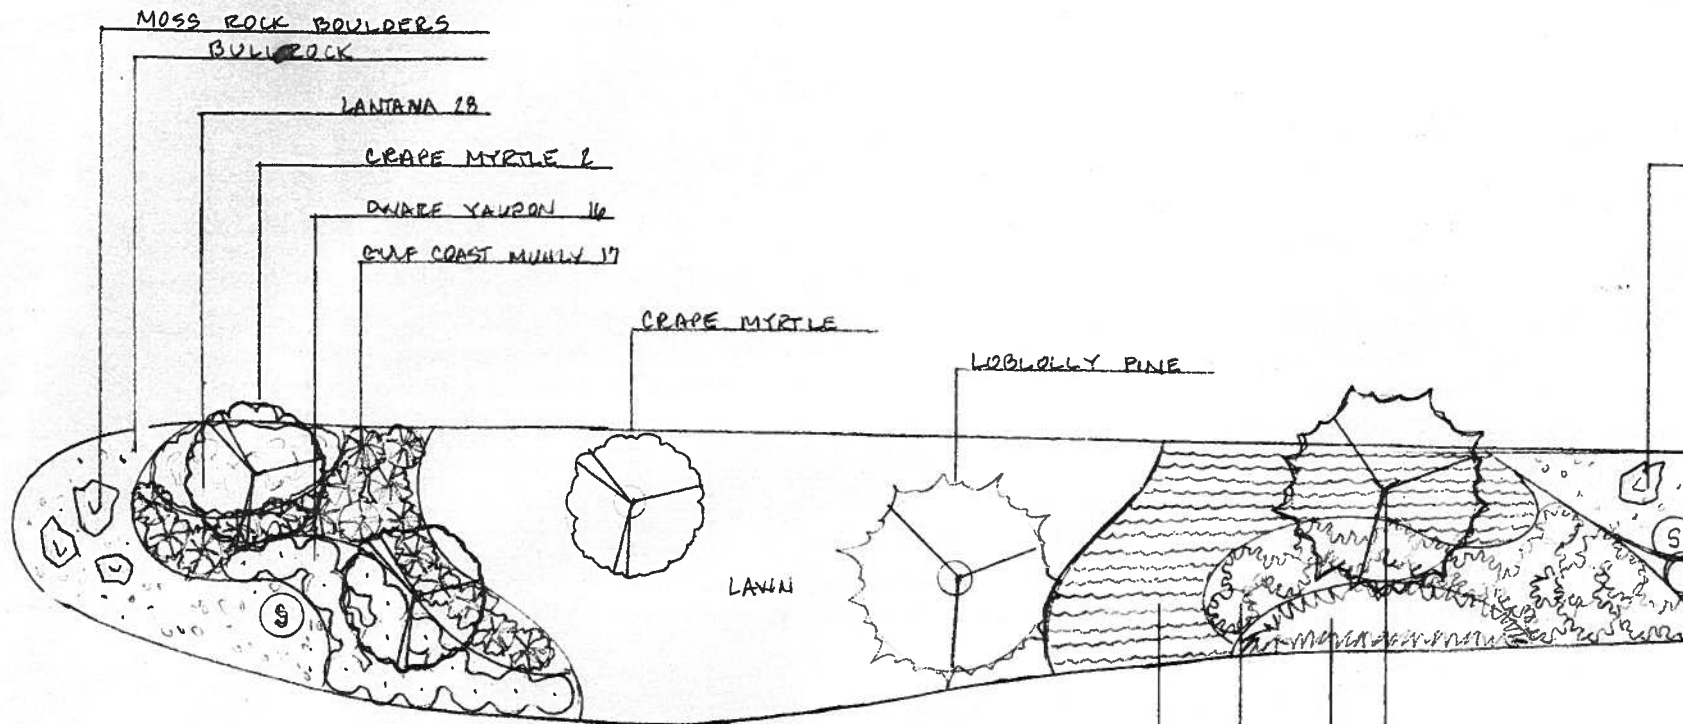 MOSS ROCK BOULDERS
BULL ROCK
LANTANA 28
CRAPE MYRTLE 2
DWARF YAUPON 16
GULF COAST MUHLY 17
CRAPE MYRTLE
LOBLOLLY PINE
LAWN
S
S